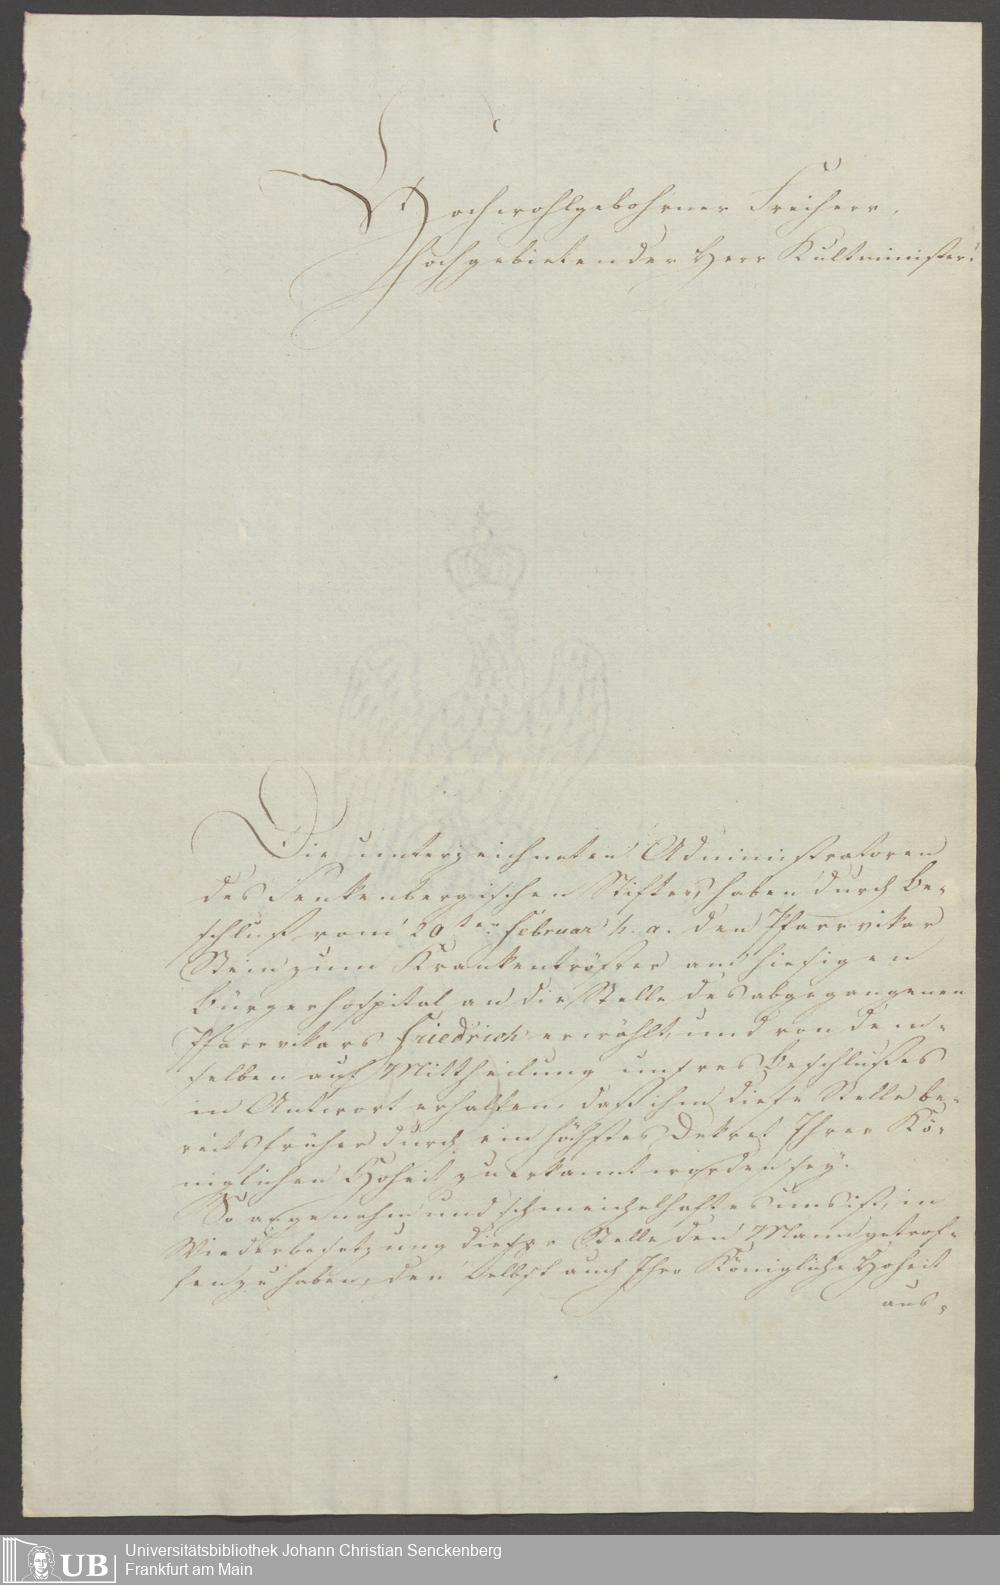 Hochwohlgebohrner Freiherr,
Hochgebietender Herr Kultminister!
Die unterzeichneten Administratoren
des Senkenbergischen Stiftes, haben durch Be-
schluß vom 29ten Februar h. a. den Pfarrvikar
Stein zum Krankentröster am hiesigen
Bürgerhospital an die Stelle des abgegangenen
Pfarrvikars Friedrich erwählt, und von dem-
selben auf Mittheilung unsres Beschlußes
in Antwort erhalten, daß ihm diese Stelle be-
reits früher durch ein höchstes Dekret Ihrer Kö-
niglichen Hoheit zuerkannt worden sey.
So angenehm und schmeichelhaft es uns ist, in
Wiederbesetzung dieser Stelle den Mann getrof-
fen zu haben, den selbst auch Ihro Königliche Hoheit
aus-
Universitätsbibliothek Johann Christian Senckenberg
Frankfurt am Main
UB